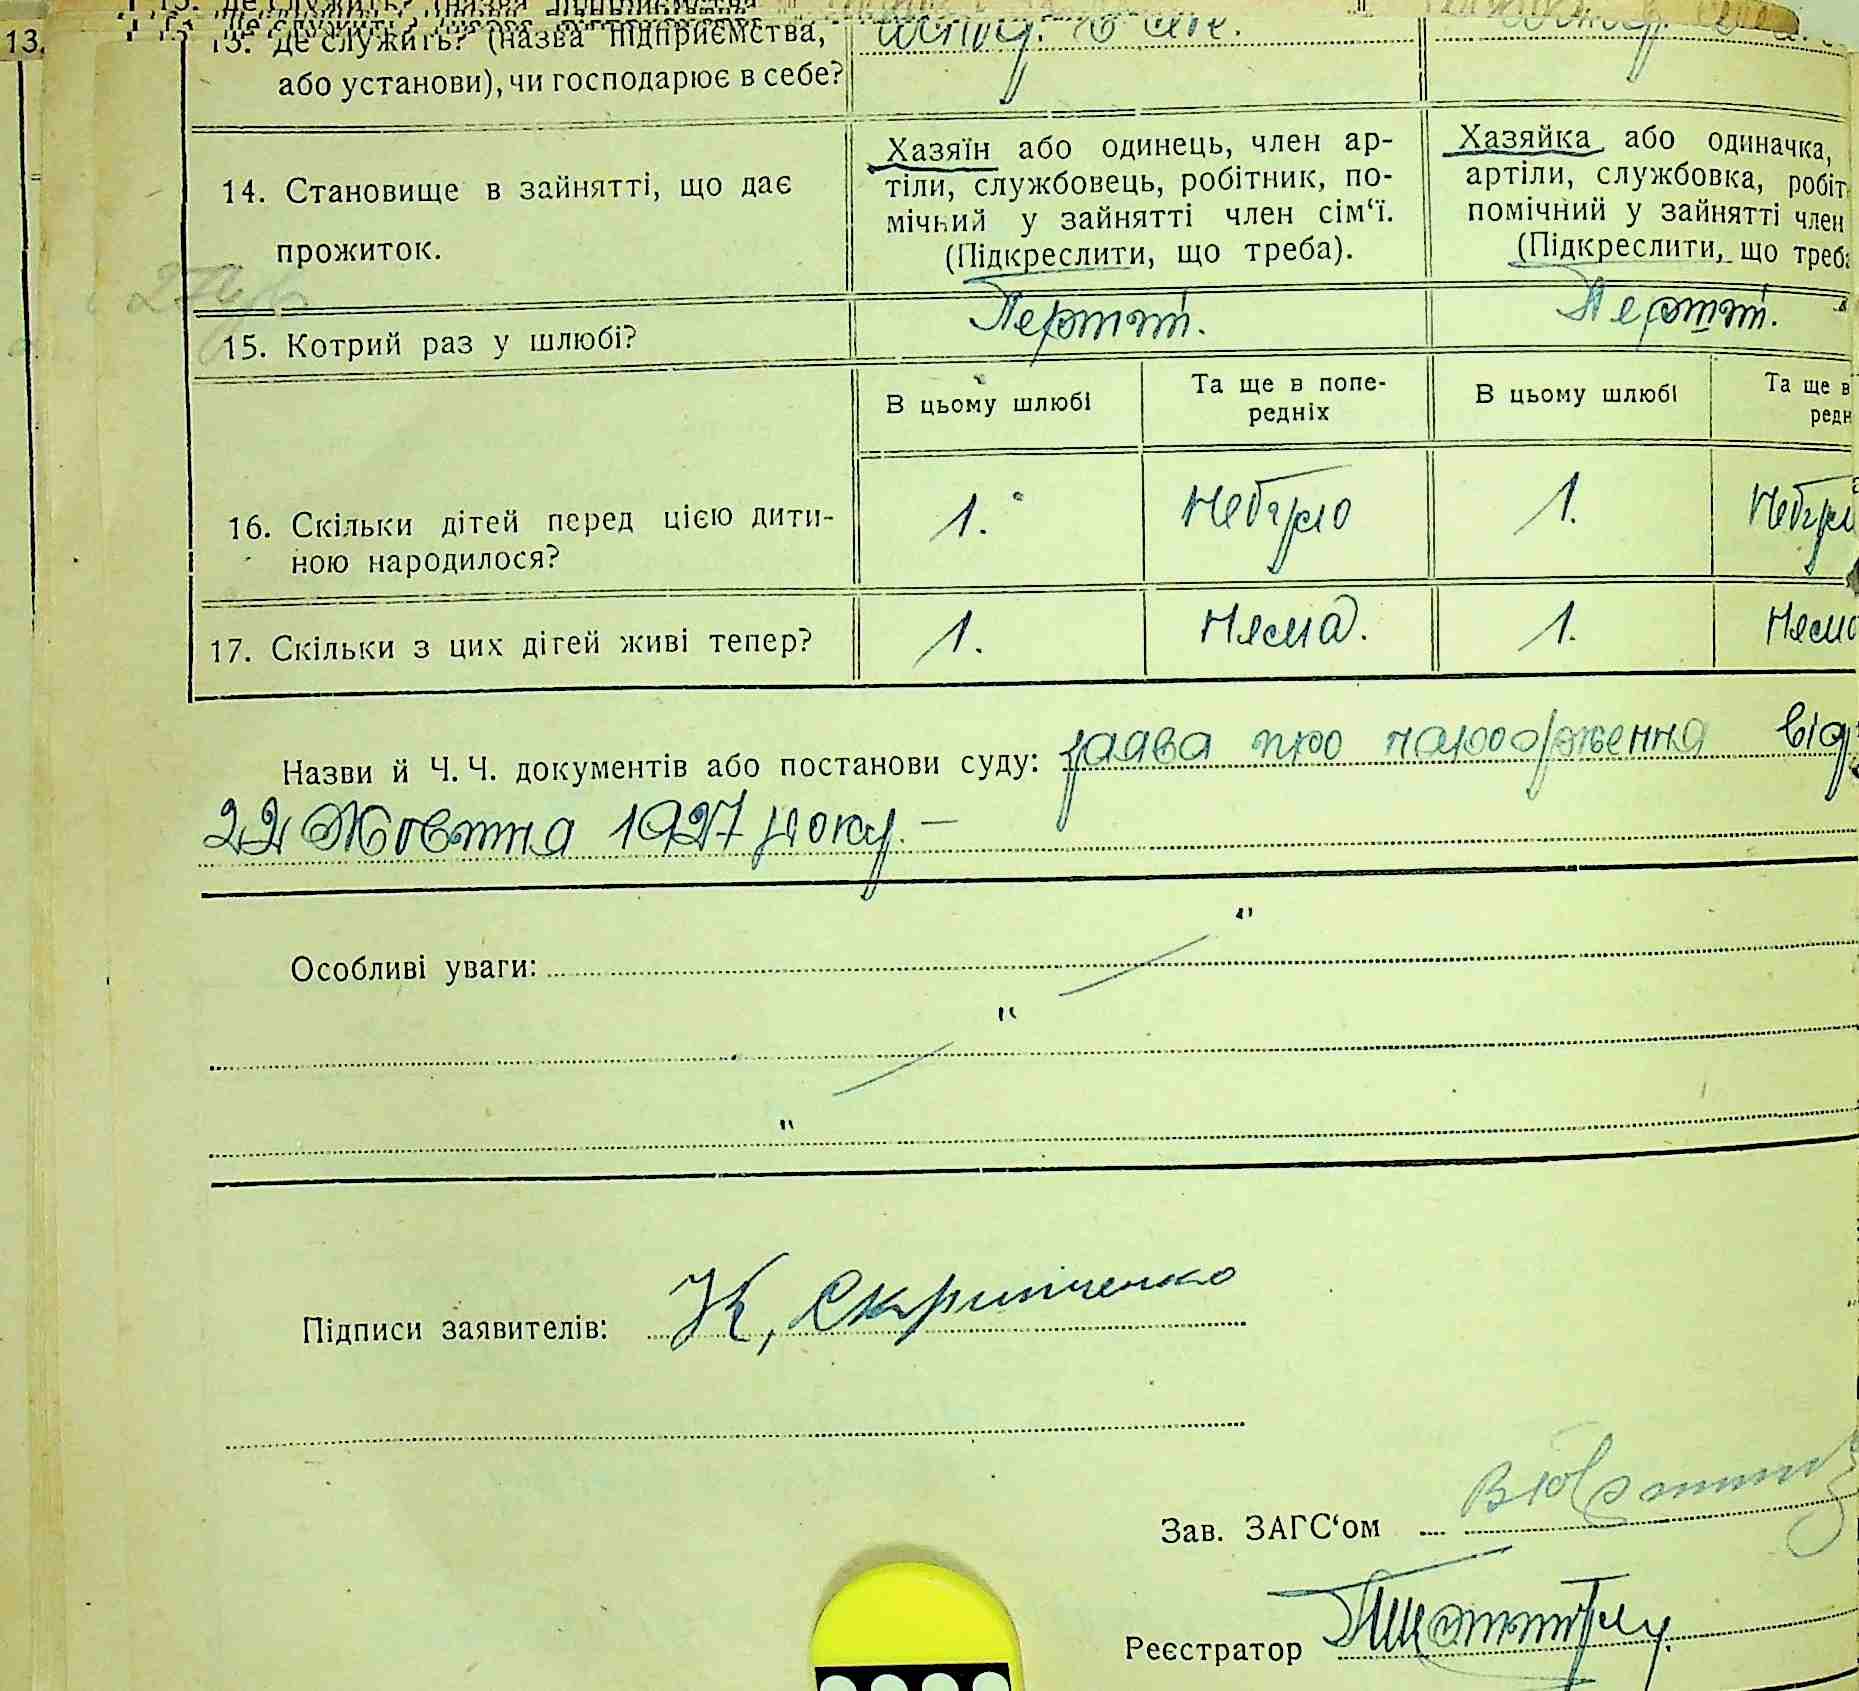 13.
13. Де служить? (назва підприємства, або установи), чи господарює в себе?
14. Становище в зайнятті, що дає прожиток.
Хазяїн або одинець, член ар-
тіли, службовець, робітник, по-
мічний у зайнятті член сім‘ї.
(Підкреслити, що треба).
Хазяйка або одиначка,
артіли, службовка, робіт
помічний у зайнятті член
(Підкреслити, що треба
15. Котрий раз у шлюбі?
Перший.
Перший.
В цьому шлюбі
Та ще в попе-
редніх
В цьому шлюбі
Та ще в
редн
16. Скільки дітей перед цією дити-
ною народилося?
1.
Небуло
1.
Небул
17. Скільки з цих дітей живі тепер?
1.
Нема.
1.
Нема
Назви й Ч. Ч. документів або постанови суду: заява про народження від
22 Жовтня 1927 року. –
Особливі уваги:
Підписи заявителів: К, Скрипченко
Зав. ЗАГС‘ом
Реєстратор